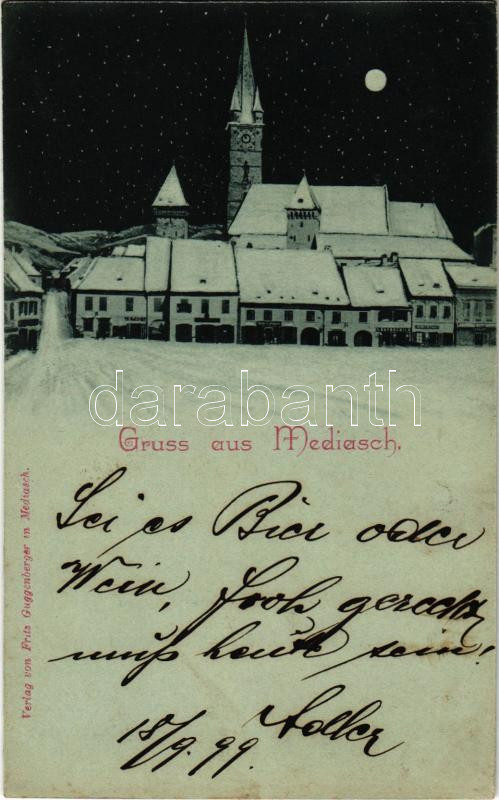 darabanth
Gruss aus Mediasch.
Verlag von Fritz Guggenberger in Mediasch.
Sei es Bier oder
Wein, froh gezecht
muß heute sein!
18/9. 99. Adler